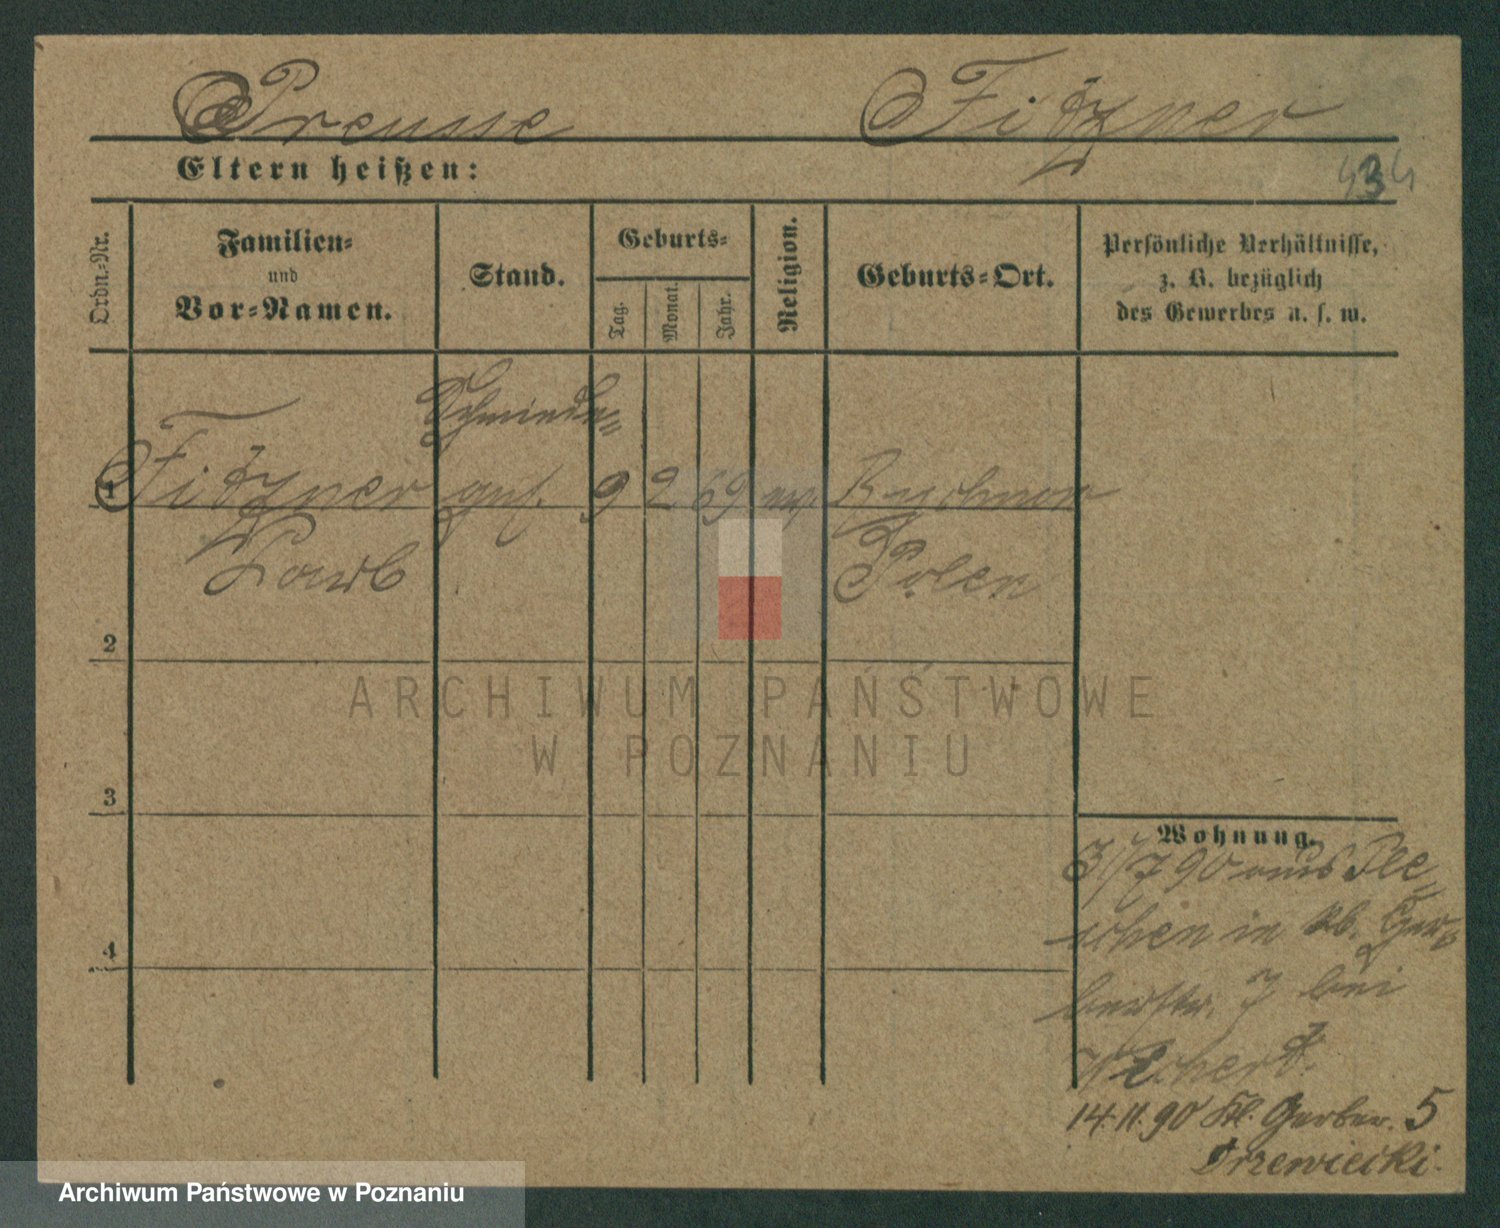 Preusse Fitzner
Eltern heißen:
434
Ordn.-Nr.
Familien-
und
Vor-Namen.
Stand.
Geburts-
Tag.
Monat.
Jahr.
Religion.
Geburts-Ort.
Persönliche Verhältnisse,
z. B. bezüglich
des Gewerbes u. s. w.
Schmiede-
1 Fitzner ges. 9 2 69
Polen
2
3
4
Wohnung.
31/7 90 aus Ple-
schen in kl. Ger-
berstr. 7 bei
14.11.90 Kl. Gerber. 5
Drzewiecki.
ARCHIWUM PAŃSTWOWE
W POZNANIU
Archiwum Państwowe w Poznaniu